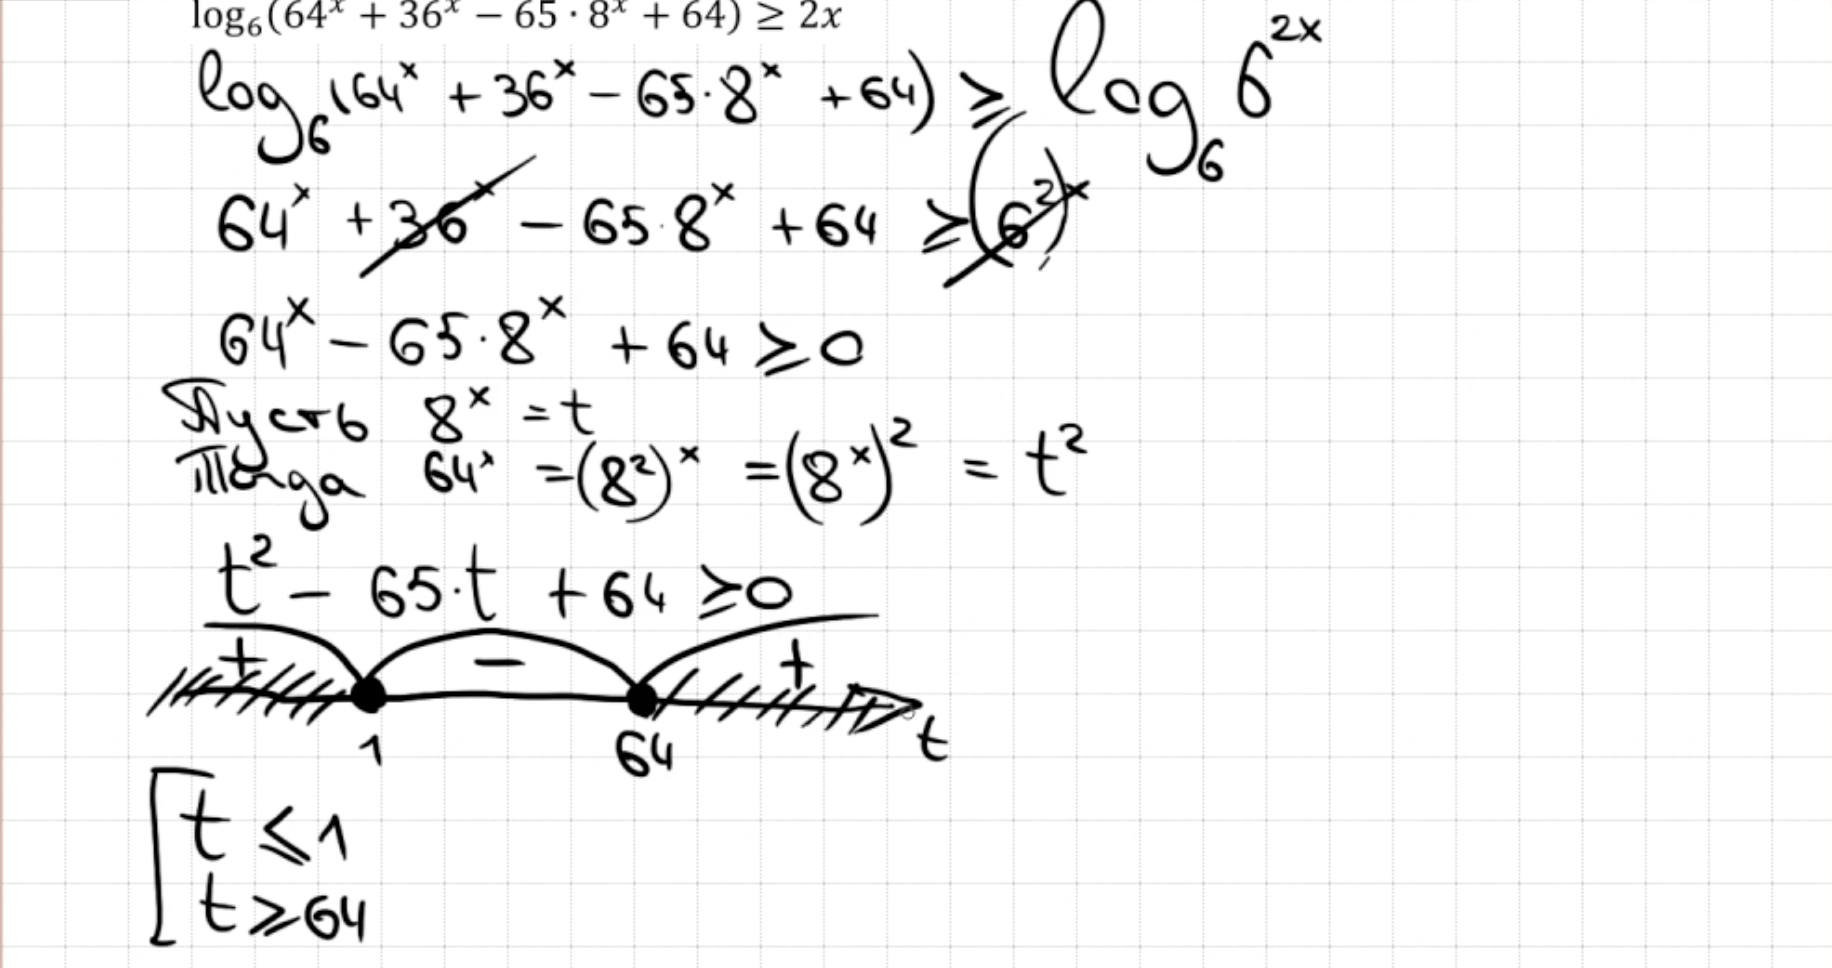 log₆(64ˣ + 36ˣ − 65 · 8ˣ + 64) ≥ 2x
log₆(64ˣ + 36ˣ − 65·8ˣ + 64) ≥ log₆ 6²ˣ
64ˣ + 36ˣ − 65·8ˣ + 64 ≥ (6²)ˣ
64ˣ − 65·8ˣ + 64 ≥ 0
Пусть 8ˣ = t
Тогда 64ˣ = (8²)ˣ = (8ˣ)² = t²
t² − 65·t + 64 ≥ 0
+ − +
1 64 t
t ≤ 1
t ≥ 64